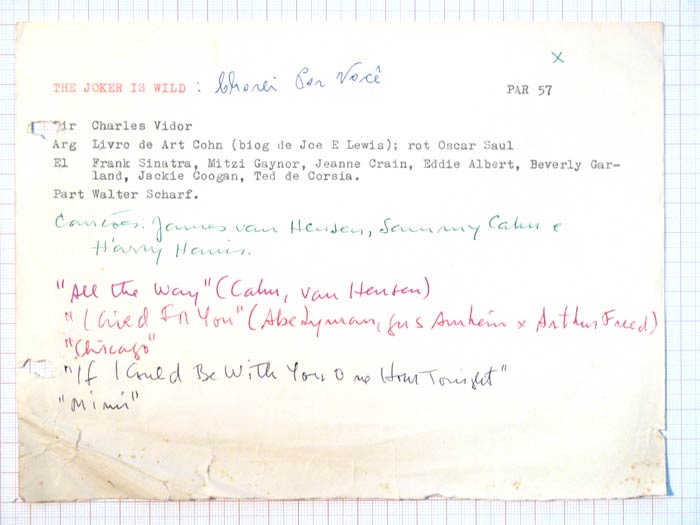 X
THE JOKER IS WILD : Chorei Por Você PAR 57
Dir Charles Vidor
Arg Livro de Art Cohn (biog de Joe E Lewis); rot Oscar Saul
El Frank Sinatra, Mitzi Gaynor, Jeanne Crain, Eddie Albert, Beverly Gar-
land, Jackie Coogan, Ted de Corsia.
Part Walter Scharf.
Canções: James van Heusen, Sammy Cahn e
Harry Harris.
"All the Way" (Cahn, van Heusen)
"I Cried For You" (Abe Lyman, Gus Arnheim x Arthur Freed)
"Chicago"
"If I Could Be With You One Hour Tonight"
"Mimi"